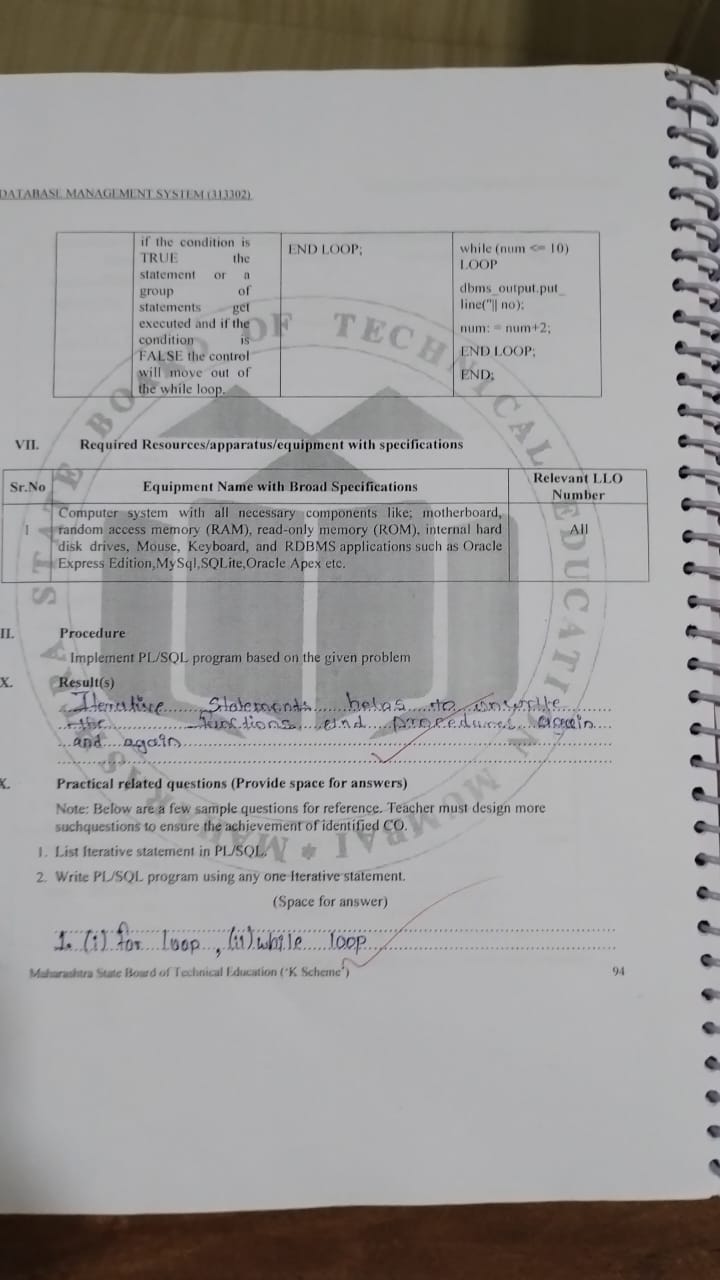 DATABASE MANAGEMENT SYSTEM (313302)
if the condition is
TRUE the
statement or a
group of
statements get
executed and if the
condition is
FALSE the control
will move out of
the while loop.
END LOOP;
while (num <= 10)
LOOP
dbms_output.put_
line(''|| no);
num: = num+2;
END LOOP;
END;
VII. Required Resources/apparatus/equipment with specifications
Sr.No Equipment Name with Broad Specifications Relevant LLO
Number
1 Computer system with all necessary components like; motherboard, All
random access memory (RAM), read-only memory (ROM), internal hard
disk drives, Mouse, Keyboard, and RDBMS applications such as Oracle
Express Edition,MySql,SQLite,Oracle Apex etc.
II. Procedure
Implement PL/SQL program based on the given problem
X. Result(s)
Iterative Statements to
the functions and procedures again
and again
X. Practical related questions (Provide space for answers)
Note: Below are a few sample questions for reference. Teacher must design more
suchquestions to ensure the achievement of identified CO.
1. List Iterative statement in PL/SQL.
2. Write PL/SQL program using any one Iterative statement.
(Space for answer)
1. (i) for loop , (ii) while loop
Maharashtra State Board of Technical Education ('K Scheme') 94
STATE BOARD OF TECHNICAL EDUCATION MUMBAI * MAHARASHTRA